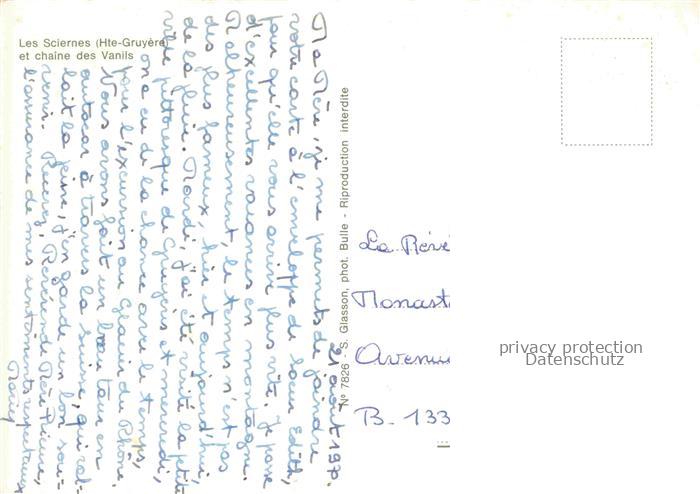 Les Sciernes (Hte-Gruyère)
et chaîne des Vanils
21 août 197
Ma Mère, je me permets de joindre
votre carte à l'enveloppe de soeur Edith,
pour qu'elle vous arrive plus vite. Je passe
d'excellentes vacances en montagne.
Malheureusement, le temps n'est pas
des plus fameux, hier et aujourd'hui,
de la pluie. Mardi, j'ai été visité la petite
ville pittoresque de Gruyères et mercredi,
on a eu de la chance avec le temps,
pour l'excursion au Glacier du Rhône.
Nous avons fait un beau tour en
autocar à travers la Suisse, qui val-
lait la peine, j'en garde un bon sou-
venir. Recevez, Révérende Mère Prieure,
l'assurance de mes sentiments respectueux
Nº 7826 - S. Glasson, phot. Bulle - Riproduction interdite
La Révé
Monast
Avenu
B. 133
...
privacy protection
Datenschutz